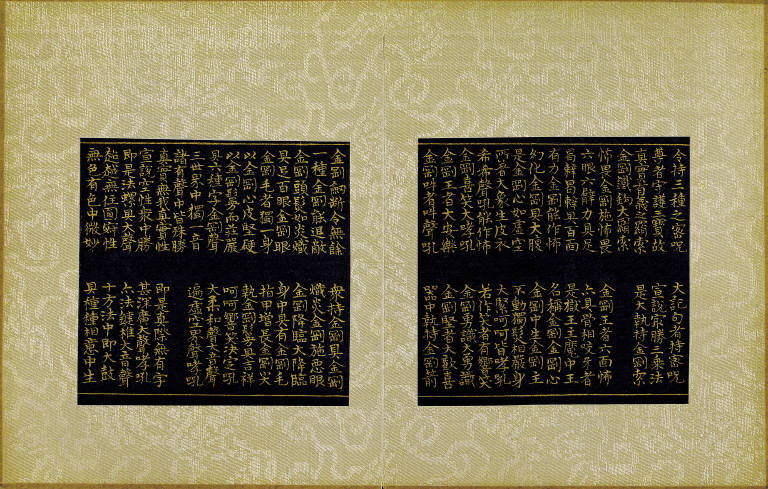 令持三種之密呪 大記句者持密呪
尊者守護三乘故 宣說最勝三乘法
真實忿怒之羂索 是大執持金剛索
金剛鐵鈎大羂索
怖畏金剛施怖畏 金剛王者六面怖
六眼六臂力具足 六具骨相咬牙者
曷辣曷辣具百面 是獄主王魔中王
有力金剛能作怖 名稱金剛金剛心
幻化金剛具大腹 金剛中生金剛王
是金剛心如虛空 不動獨髮相嚴身
所著大象生皮衣 大緊呵呵皆哮吼
希希聲吼能作怖 若作笑者有響笑
金剛喜笑大哮吼 金剛勇識大勇識
金剛王者大安樂 金剛堅者大歡喜
金剛吽者吽聲吼 器中執持金剛箭
金剛劒斷令無餘 衆持金剛具金剛
一種金剛能退敵 熾炎金剛施惡眼
金剛頭髮如炎熾 金剛降臨大降臨
具足百眼金剛眼 身中具有金剛毛
金剛毛者獨一身 指甲增長金剛尖
以金剛心皮堅硬 執金剛鬘具吉祥
以金剛鬘而莊嚴 呵呵響笑決定吼
具六種字金剛聲 大柔和聲大音聲
三世界中獨一音 遍虛空界聲哮吼
諸有聲中皆殊勝
真實無我真實性 即是真際無有字
宣說空性衆中勝 甚深廣大聲哮吼
即是法螺具大聲 亦法犍椎大音聲
超越無住圓寂性 十方法中即大鼓
無色有色中微妙 具種種相意中生